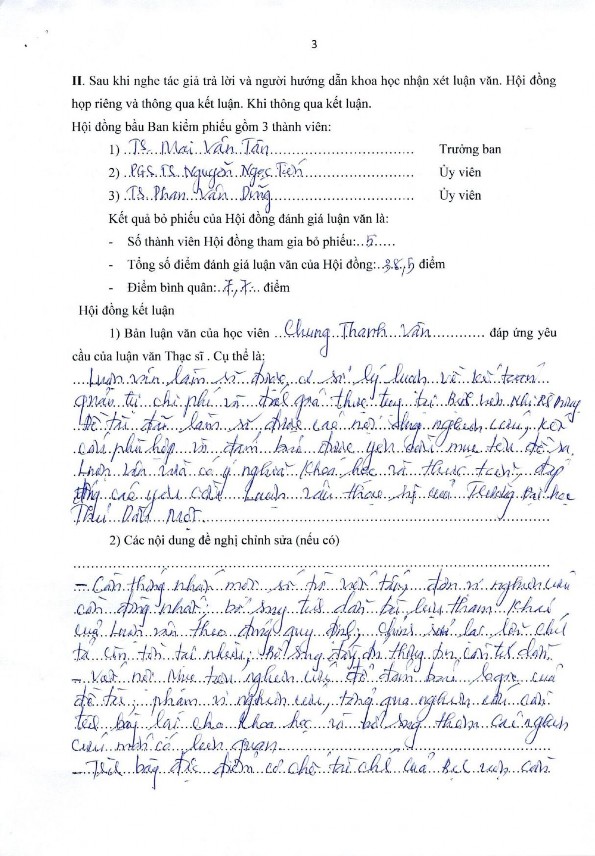 3
II. Sau khi nghe tác giả trả lời và người hướng dẫn khoa học nhận xét luận văn. Hội đồng
họp riêng và thông qua kết luận. Khi thông qua kết luận.
Hội đồng bầu Ban kiểm phiếu gồm 3 thành viên:
1) TS. Mai Văn Tân Trưởng ban
2) PGS.TS Nguyễn Ngọc Tiến Ủy viên
3) TS Phan Văn Dũng Ủy viên
Kết quả bỏ phiếu của Hội đồng đánh giá luận văn là:
- Số thành viên Hội đồng tham gia bỏ phiếu: 5
- Tổng số điểm đánh giá luận văn của Hội đồng: 38,5 điểm
- Điểm bình quân: 7,7 điểm
Hội đồng kết luận
1) Bản luận văn của học viên Chung Thanh Vân đáp ứng yêu
cầu của luận văn Thạc sĩ . Cụ thể là:
Luận văn làm rõ được cơ sở lý luận về kế toán
quản trị chi phí và thực tại viện Nhi
Đề tài đã làm rõ được các nội dung nghiên cứu, kết
cấu phù hợp và đảm bảo được yêu cầu mục tiêu đề ra.
Luận văn có ý nghĩa khoa học và thực tiễn, đáp
ứng các yêu cầu luận văn thạc sỹ của Trường Đại học
Thủ Dầu Một.
2) Các nội dung đề nghị chỉnh sửa (nếu có)
- Cần thống nhất một số từ viết tắt, đơn vị nghiên cứu
cần đồng nhất; bổ sung tài liệu tham khảo
của luận văn theo đúng quy định; chỉnh sửa lại lỗi chính
tả còn tồn tại nhiều; bổ sung đầy đủ thông tin
- nội mục tiêu nghiên cứu để đảm bảo logic của
đề tài; phạm vi nghiên cứu, tổng quan nghiên cứu cần
trình bày lại cho khoa học và bổ sung thêm các nghiên
cứu mới có liên quan.
- Trình bày đặc điểm cơ chế tài chính của viện cần